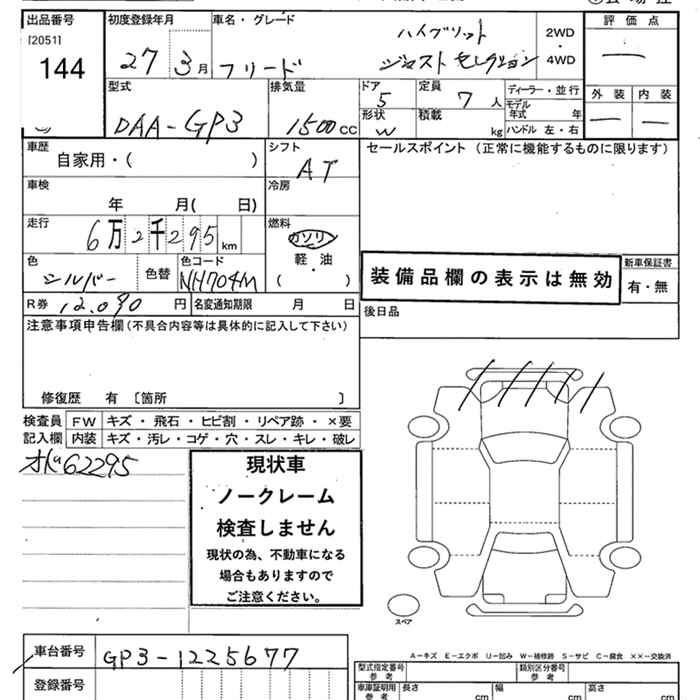 出品番号 初度登録年月 車名・グレード ハイブリット 2WD 評価点
[2051] 27 3月 フリード ジャスト セレクション ・ 4WD —
144
型式 排気量 ドア 定員 ディーラー・並行 外装 内装
DAA-GP3 1500cc 5 7人 モデル年式 年 — —
形状 W 積載 kg ハンドル 左・右
車歴 シフト セールスポイント (正常に機能するものに限ります)
自家用・( ) AT
車検 冷房
年 月( 日)
走行 燃料
6万2千295km ガソリン
軽・油
色 色コード ( )
シルバー 色替 NH704M
装備品欄の表示は無効 新車保証書
有・無
R券 12,090円 名変通知期限 月 日 後日品
注意事項申告欄(不具合内容等は具体的に記入して下さい)
修復歴 有 〔箇所 〕
検査員 FW キズ・飛石・ヒビ割・リペア跡・×要
記入欄 内装 キズ・汚レ・コゲ・穴・スレ・キレ・破レ
62295
現状車
ノークレーム
検査しません
現状の為、不動車になる
場合もありますので
ご注意ください。
スペア
A-キズ E-エクボ U-凹み W-補修跡 S-サビ C-腐食 ××-交換済
車台番号 GP3-1225677
登録番号
型式指定番号 類別区分番号
参考 参考
車庫証明用 長さ 幅 高さ
参考 cm cm cm